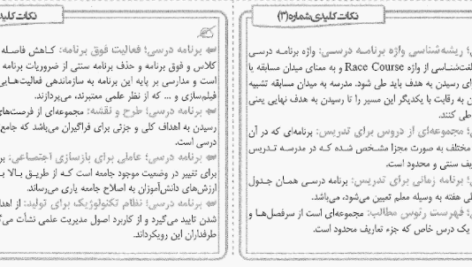 نکات کلیدی شماره (۳)
ریشه‌شناسی واژه برنامه درسی: واژه برنامه درسی
از واژه Race Course و به معنای میدان مسابقه یا
رسیدن به هدف باید طی شود. مدرسه به میدان مسابقه تشبیه
به رقابت با یکدیگر این مسیر را تا رسیدن به هدف نهایی یعنی
طی کنند.
مجموعه‌ای از دروس برای تدریس: برنامه‌ای که در آن
مختلف به صورت مجزا مشخص شده که در مدرسه تدریس
سنتی و محدود است.
برنامه زمانی برای تدریس: برنامه درسی همان جدول
هفته به وسیله معلم تعیین می‌شود، می‌باشد.
فهرست رئوس مطالب: مجموعه‌ای است از سرفصل‌ها و
یک درس خاص که جزء تعاریف محدود است.
نکات کلیدی
برنامه درسی؛ فعالیت فوق برنامه: کاهش فاصله
کلاس و فوق برنامه و حذف برنامه سنتی از ضروریات برنامه
است و مدارسی بر پایه این برنامه به سازماندهی فعالیت‌هایی
فیلم‌سازی و ... که از نظر علمی معتبرند، می‌پردازند.
برنامه درسی؛ طرح و نقشه: مجموعه‌ای از فرصت‌های
رسیدن به اهداف کلی و جزئی برای فراگیران می‌باشد که جامع
درسی است.
برنامه درسی؛ عاملی برای بازسازی اجتماعی:
برای تغییر در وضعیت موجود جامعه است که از طریق بالا
ارزش‌های دانش‌آموزان به اصلاح جامعه یاری می‌رساند.
برنامه درسی؛ نظام تکنولوژیک برای تولید: از
شدن تایید می‌گیرد و از کاربرد اصول مدیریت علمی نشأت
طرفداران این رویکردند.